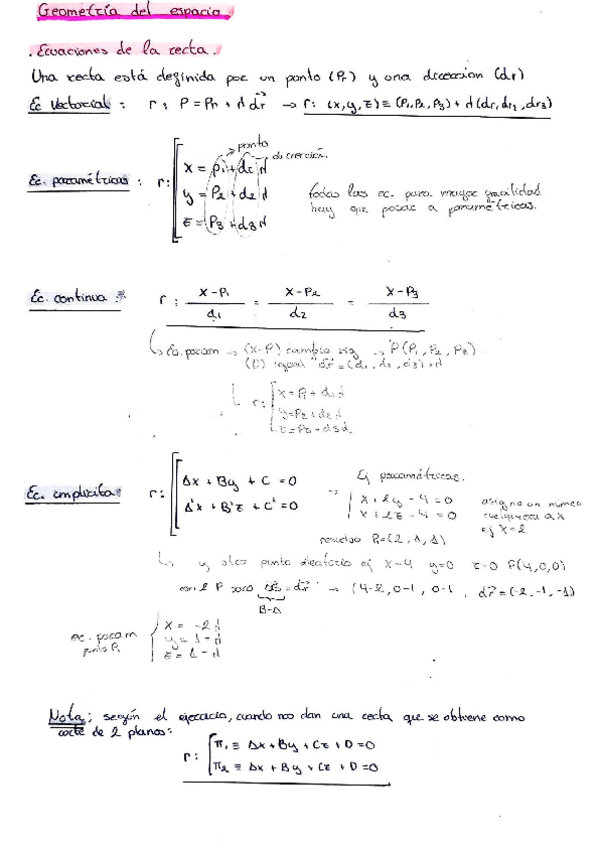 Geometría del espacio
. Ecuaciones de la recta.
Una recta está definida por un punto (Pr) y una direccion (dr)
Ec Vectorial: r: P = Pr + λ dr → r: (x,y,z) ≡ (P1,P2,P3) + λ(dr1,dr2,dr3)
punto
direccion.
Ec. paramétricas: r:
x = P1 + d1 λ
y = P2 + d2 λ
z = P3 + d3 λ
todas las ec. para mayor facilidad
hay que pasar a paramétricas.
Ec. continua: r: x-P1 / d1 = x-P2 / d2 = x-P3 / d3
↳ Ec. param → (x-P) cambio sig → P(P1, P2, P3)
r:
x = P1 + d1 λ
y = P2 + d2 λ
z = P3 + d3 λ
Ec. implicita: r:
Ax + By + C = 0
A'x + B'z + C' = 0
Ej paramétricas.
x + 2y - 4 = 0
x + 2z - 4 = 0
asigno un número
cualquiera a x
ej x=2
resuelvo P1=(2,1,1)
↳ y otro punto aleatorio ej x=4 y=0 z=0 P(4,0,0)
con 2 P saco = dr → (4-2, 0-1, 0-1
B-A
dr=(-2,-1,-1)
ec. param
punto P1
x = -2λ
y = 1-λ
z = 1-λ
Nota: según el ejercicio, cuando nos dan una recta que se obtiene como
corte de 2 planos:
r:
π1 ≡ Ax + By + Cz + D = 0
π2 ≡ Ax + By + Cz + D = 0